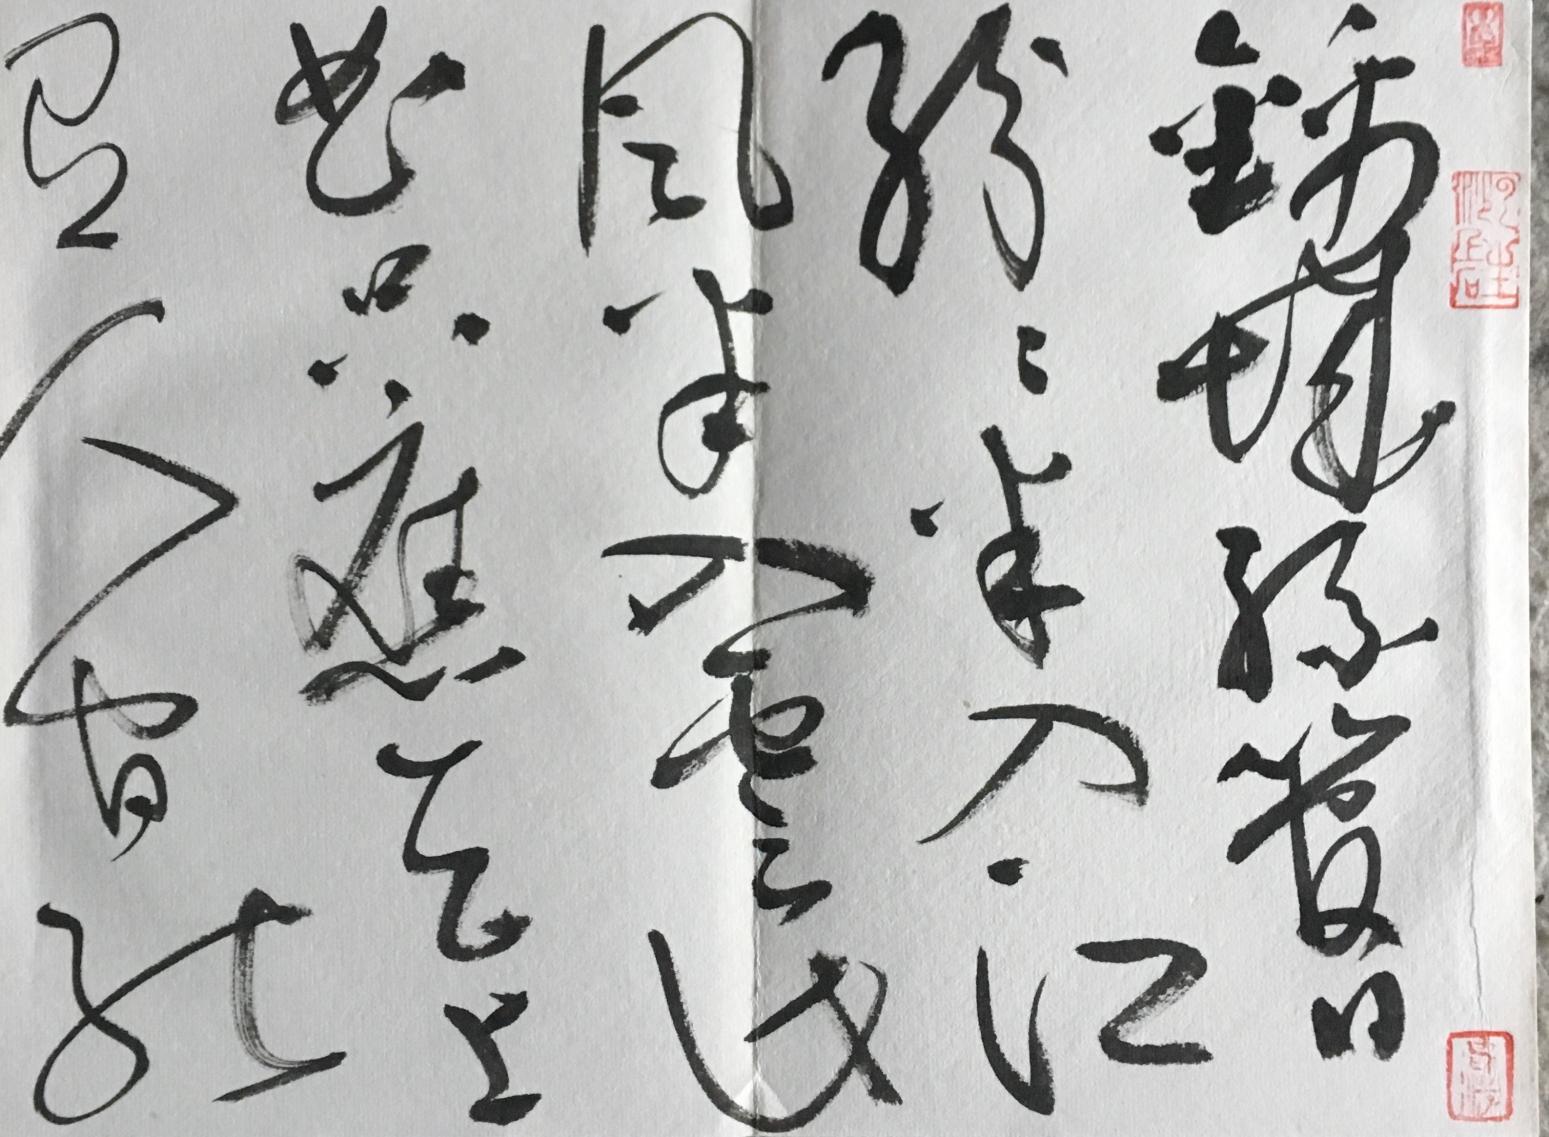 錦城絲管日
紛〻半入江
風半入雲此
曲只應天上
有人間能